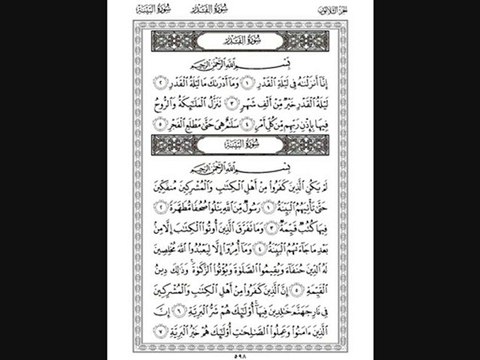 الجزء الثلاثون سورة القدر سورة البينة
سورة القدر
بسم الله الرحمن الرحيم
إِنَّا أَنزَلْنَٰهُ فِى لَيْلَةِ ٱلْقَدْرِ ١ وَمَآ أَدْرَىٰكَ مَا لَيْلَةُ ٱلْقَدْرِ ٢
لَيْلَةُ ٱلْقَدْرِ خَيْرٌ مِّنْ أَلْفِ شَهْرٍ ٣ تَنَزَّلُ ٱلْمَلَٰٓئِكَةُ وَٱلرُّوحُ
فِيهَا بِإِذْنِ رَبِّهِم مِّن كُلِّ أَمْرٍ ٤ سَلَٰمٌ هِىَ حَتَّىٰ مَطْلَعِ ٱلْفَجْرِ ٥
سورة البينة
بسم الله الرحمن الرحيم
لَمْ يَكُنِ ٱلَّذِينَ كَفَرُوا۟ مِنْ أَهْلِ ٱلْكِتَٰبِ وَٱلْمُشْرِكِينَ مُنفَكِّينَ
حَتَّىٰ تَأْتِيَهُمُ ٱلْبَيِّنَةُ ١ رَسُولٌ مِّنَ ٱللَّهِ يَتْلُوا۟ صُحُفًا مُّطَهَّرَةً ٢
فِيهَا كُتُبٌ قَيِّمَةٌ ٣ وَمَا تَفَرَّقَ ٱلَّذِينَ أُوتُوا۟ ٱلْكِتَٰبَ إِلَّا مِنۢ
بَعْدِ مَا جَآءَتْهُمُ ٱلْبَيِّنَةُ ٤ وَمَآ أُمِرُوٓا۟ إِلَّا لِيَعْبُدُوا۟ ٱللَّهَ مُخْلِصِينَ
لَهُ ٱلدِّينَ حُنَفَآءَ وَيُقِيمُوا۟ ٱلصَّلَوٰةَ وَيُؤْتُوا۟ ٱلزَّكَوٰةَ وَذَٰلِكَ دِينُ
ٱلْقَيِّمَةِ ٥ إِنَّ ٱلَّذِينَ كَفَرُوا۟ مِنْ أَهْلِ ٱلْكِتَٰبِ وَٱلْمُشْرِكِينَ
فِى نَارِ جَهَنَّمَ خَٰلِدِينَ فِيهَآ أُو۟لَٰٓئِكَ هُمْ شَرُّ ٱلْبَرِيَّةِ ٦ إِنَّ
ٱلَّذِينَ ءَامَنُوا۟ وَعَمِلُوا۟ ٱلصَّٰلِحَٰتِ أُو۟لَٰٓئِكَ هُمْ خَيْرُ ٱلْبَرِيَّةِ ٧
٥٩٨